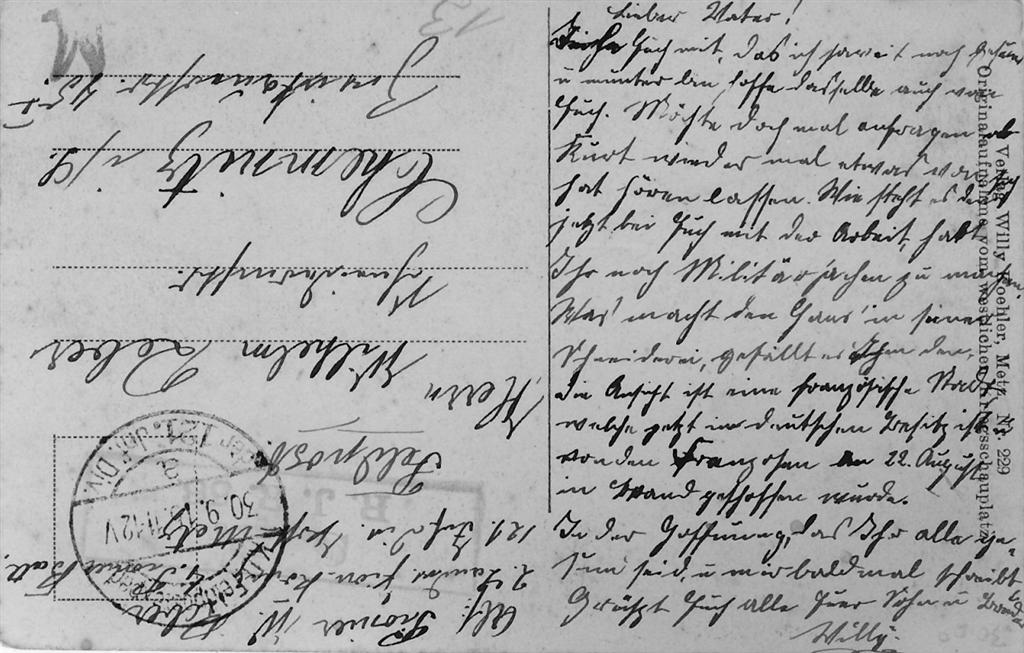 Lieber Vater!
Teile Euch mit, das ich soweit noch gesund
u munter bin, hoffe dasselbe auch von
Euch. Möchte doch mal anfragen ob
Kurt wieder mal etwas von sich
hat hören lassen. Wie steht es den
jetzt bei Euch mit der Arbeit, habt
Ihr noch Militärsachen zu machen.
Was macht den Hans in seiner
Schneiderei, gefällt es Ihm den,
die Ansicht ist eine französische Stadt
welche jetzt in deutschen Besitz ist
von den Franzosen am 22. August
in Brand geschossen wurde.
In der Hoffnung, das Ihr alle ge-
sund seid, u mir bald mal schreibt
Grüßt Euch alle Euer Sohn u Bruder
Willy.
Verlag Willy Koehler, Metz. Nr. 229
Originalaufnahme vom westlichen Kriegsschauplatz
13
Feldpost.
Herrn
Wilhelm
Schneidermstr.
Chemnitz i/S.
Abs. Pionier W.
2. Landw. Pion. Komp.
121. Inf. Div.
Metz
30.9.
11-12V
121. Inf. DIV.